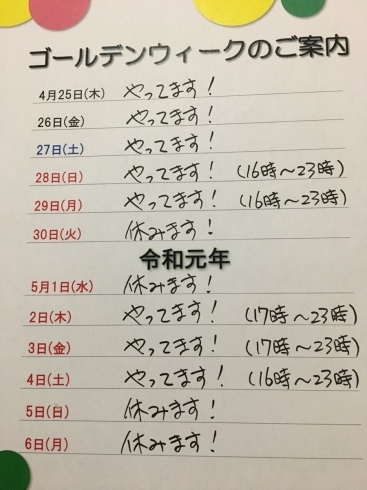 ゴールデンウィークのご案内
4月25日(木) やってます!
26日(金) やってます!
27日(土) やってます!
28日(日) やってます! (16時～23時)
29日(月) やってます! (16時～23時)
30日(火) 休みます!
令和元年
5月1日(水) 休みます!
2日(木) やってます! (17時～23時)
3日(金) やってます! (17時～23時)
4日(土) やってます! (16時～23時)
5日(日) 休みます!
6日(月) 休みます!